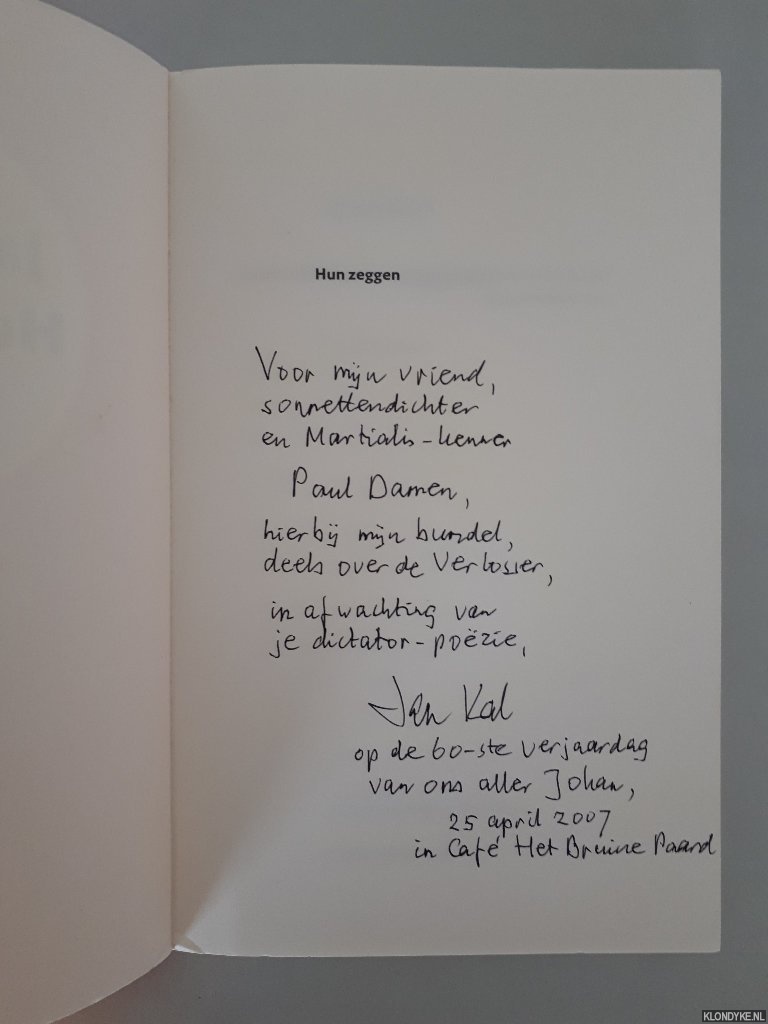 Hun zeggen
Voor mijn vriend,
sonnettendichter
en Martialis-kenner
Paul Damen,
hierbij mijn bundel,
deels over de Verlosser,
in afwachting van
je dictator-poëzie,
Jan Kal
op de 60-ste verjaardag
van ons aller Johan,
25 april 2007
in Café Het Bruine Paard
KLONDYKE.NL